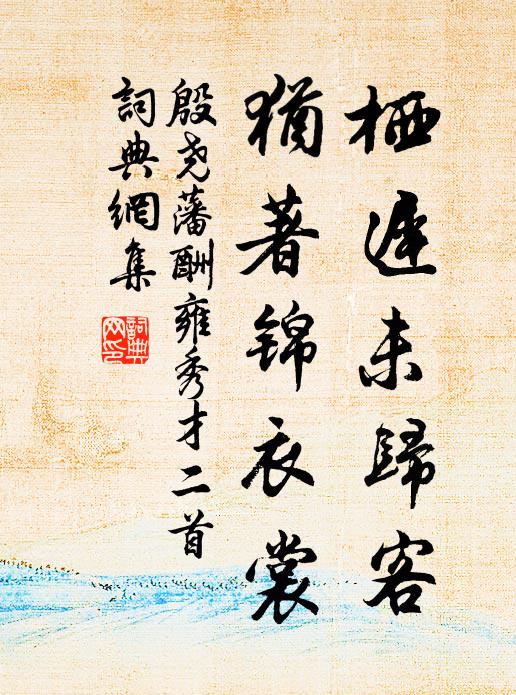 栖遲未歸客
猶著錦衣裳
殷尧藩酬雍秀才二首
詞典網集
詞典
网印